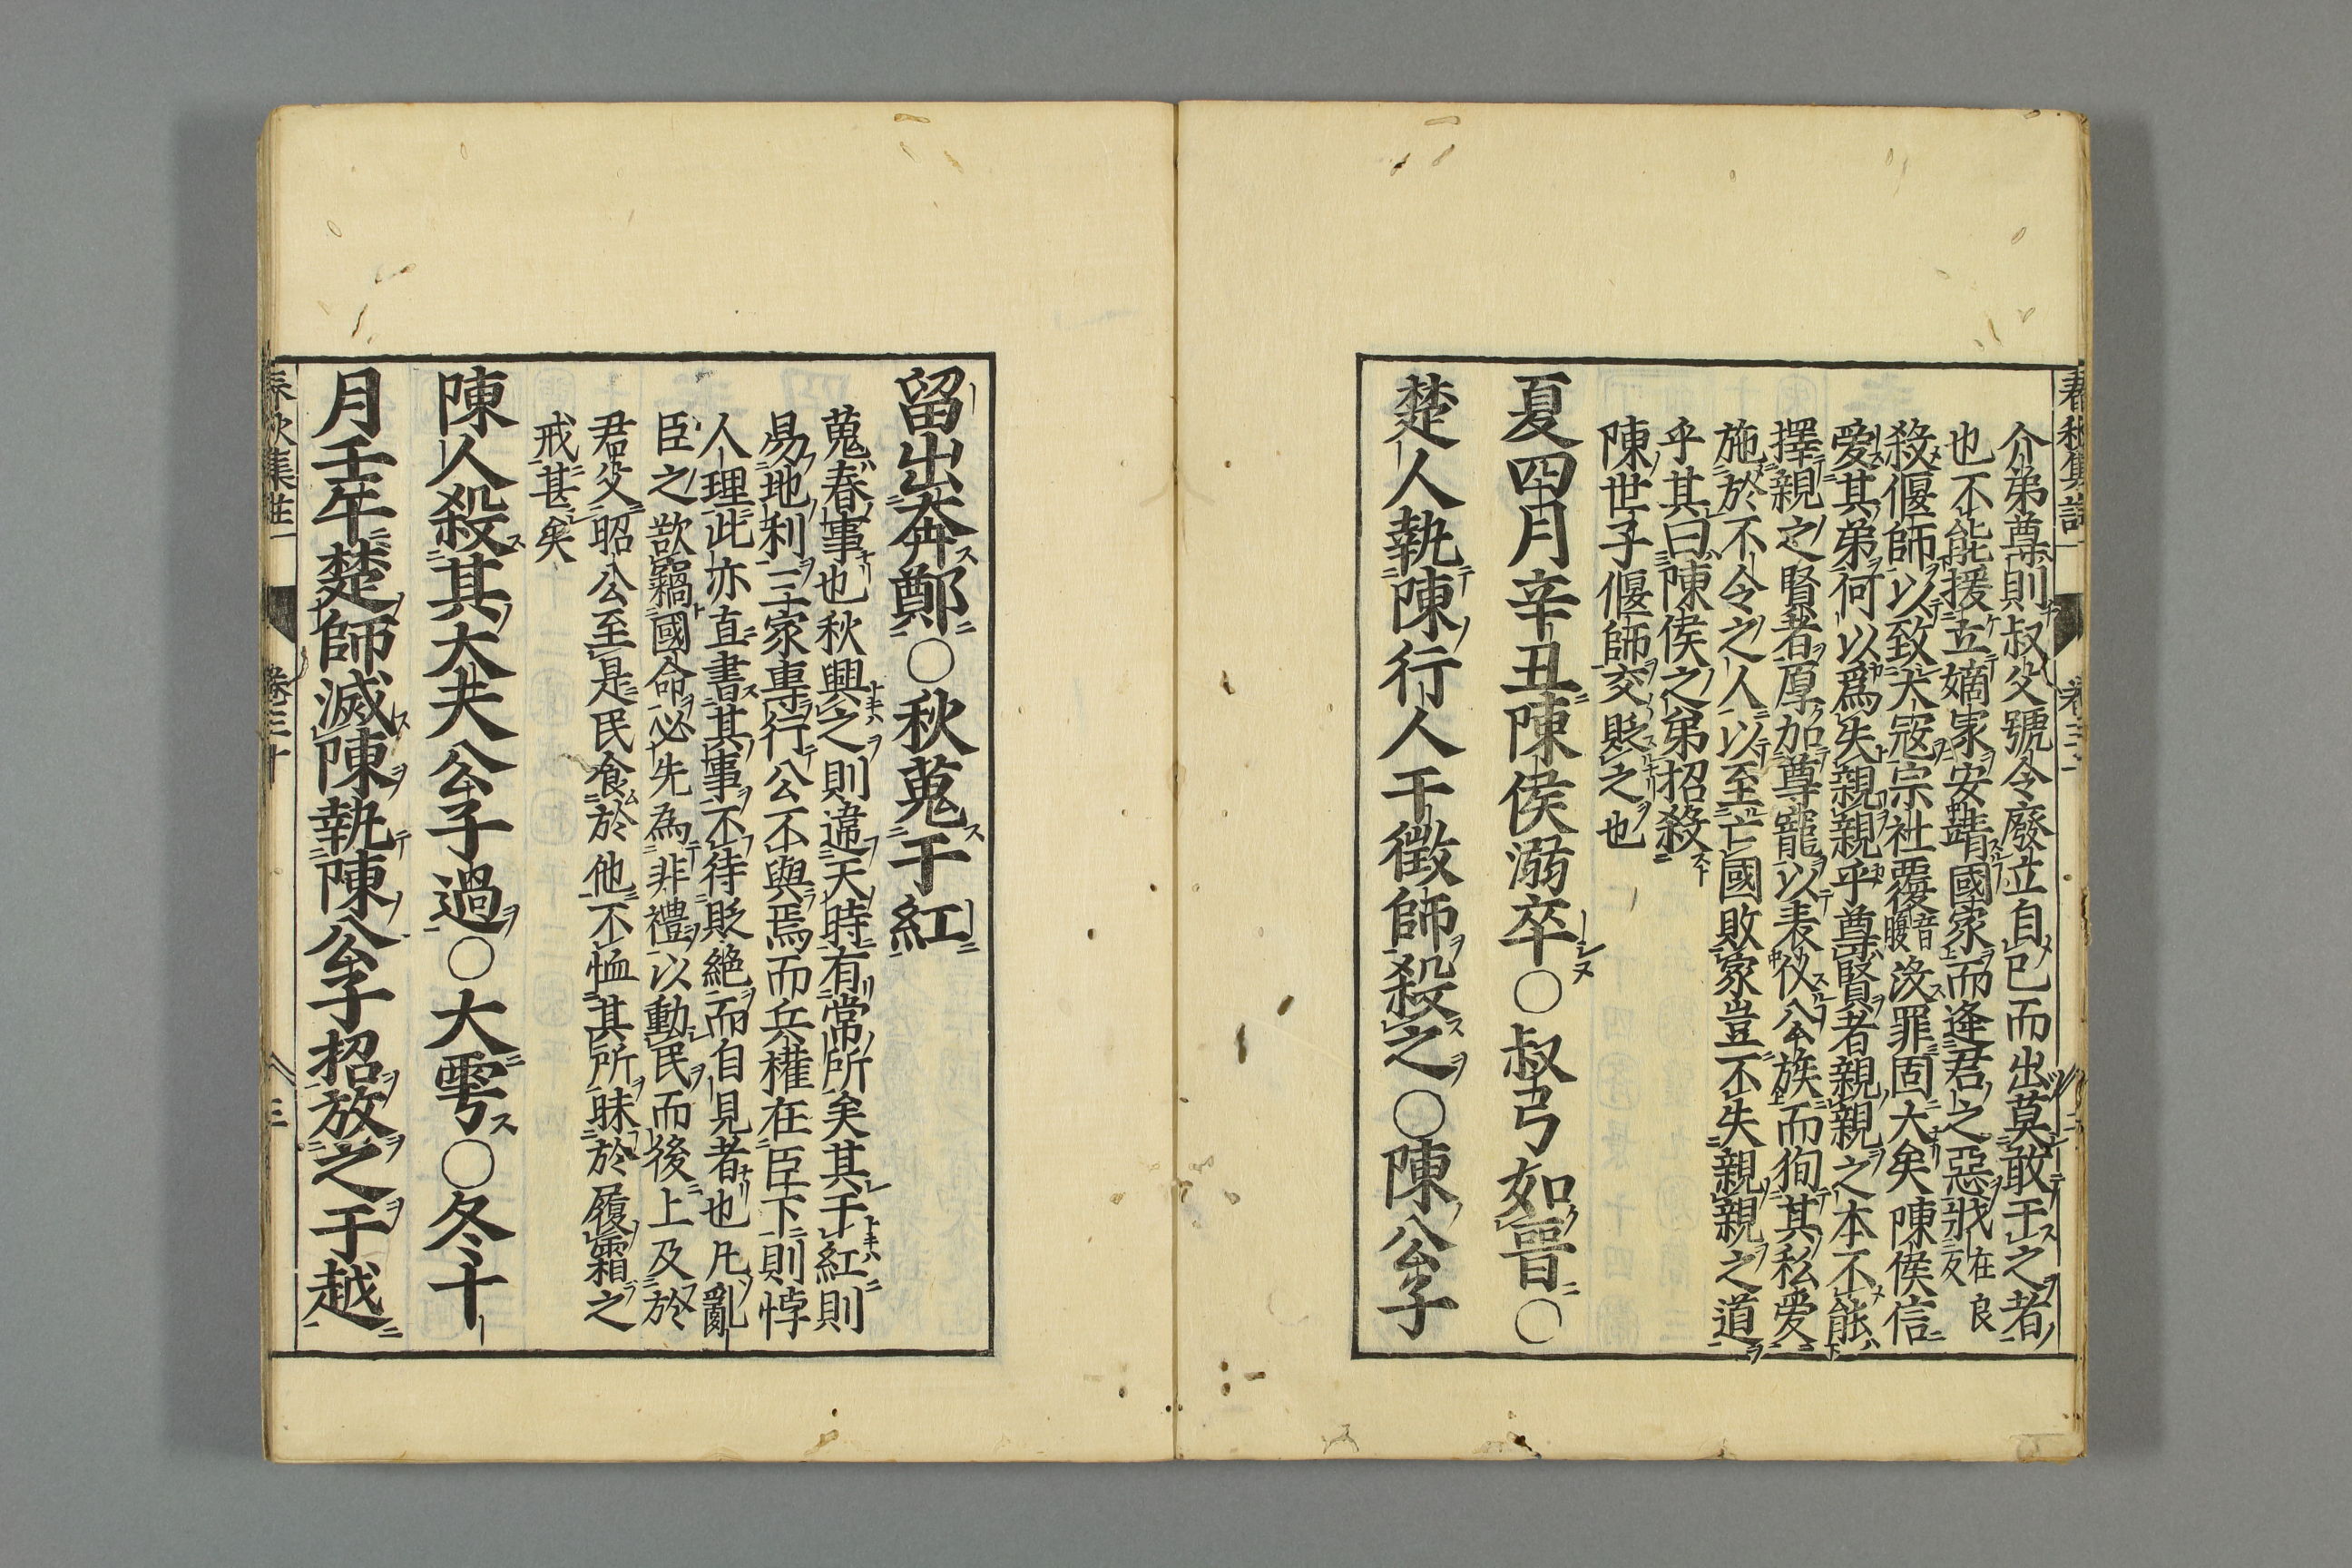 介弟尊則叔父號令廢立自已而出莫敢干之者
也不能援立嫡冢安靖國家而逢君之惡戕在良反
殺偃師以致大寇宗社覆音腹沒罪固大矣陳侯信
愛其弟何以爲失親親乎尊賢者親親之本不能
擇親之賢者厚加尊寵以表儀公族而徇其私愛
施於不令之人以至亡國敗家豈不失親親之道
乎其曰陳侯之弟招殺
陳世子偃師交貶之也
夏四月辛丑陳侯溺卒○叔弓如晉○
楚人執陳行人干徵師殺之○陳公子
留出奔鄭○秋蒐于紅
蒐春事也秋興之則違天時有常所矣其于紅則
易地利三家專行公不與焉而兵權在臣下則悖
人理此亦直書其事不待貶絶而自見者也凡亂
臣之欲竊國命必先為非禮以動民而後上及於
君父昭公至是民食於他不恤其所昧於履霜之
戒甚矣
陳人殺其大夫公子過○大雩○冬十
月壬午楚師滅陳執陳公子招放之于越
春秋集註 卷三十 三